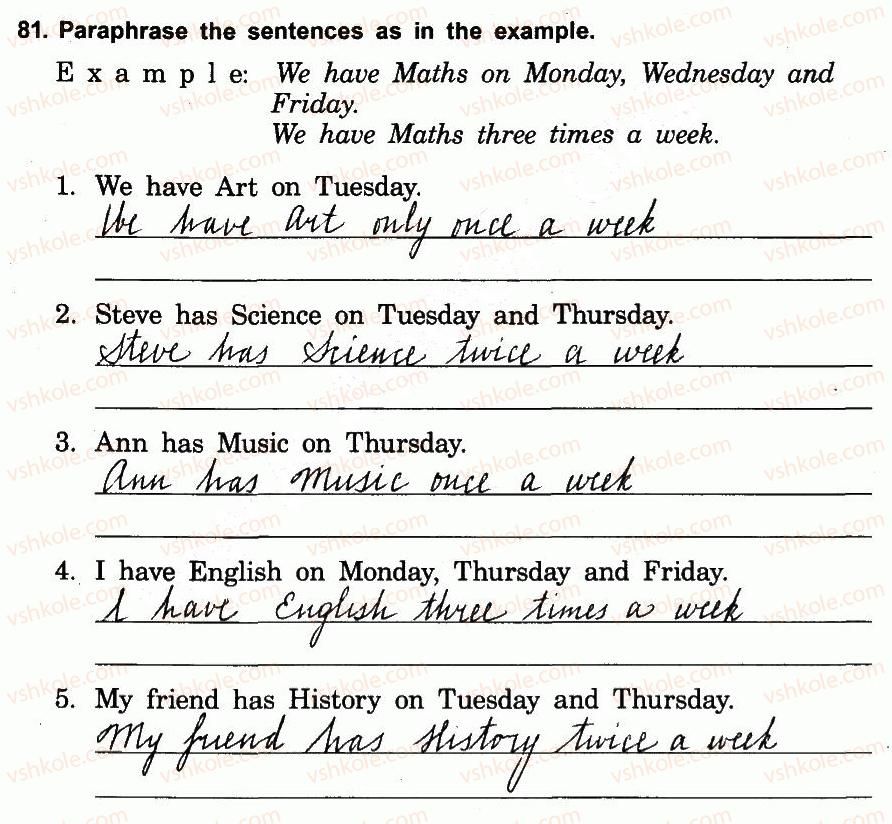 81. Paraphrase the sentences as in the example.
Example: We have Maths on Monday, Wednesday and
Friday.
We have Maths three times a week.
1. We have Art on Tuesday.
We have Art only once a week
2. Steve has Science on Tuesday and Thursday.
Steve has Science twice a week
3. Ann has Music on Thursday.
Ann has Music once a week
4. I have English on Monday, Thursday and Friday.
I have English three times a week
5. My friend has History on Tuesday and Thursday.
My friend has History twice a week
vshkole.com